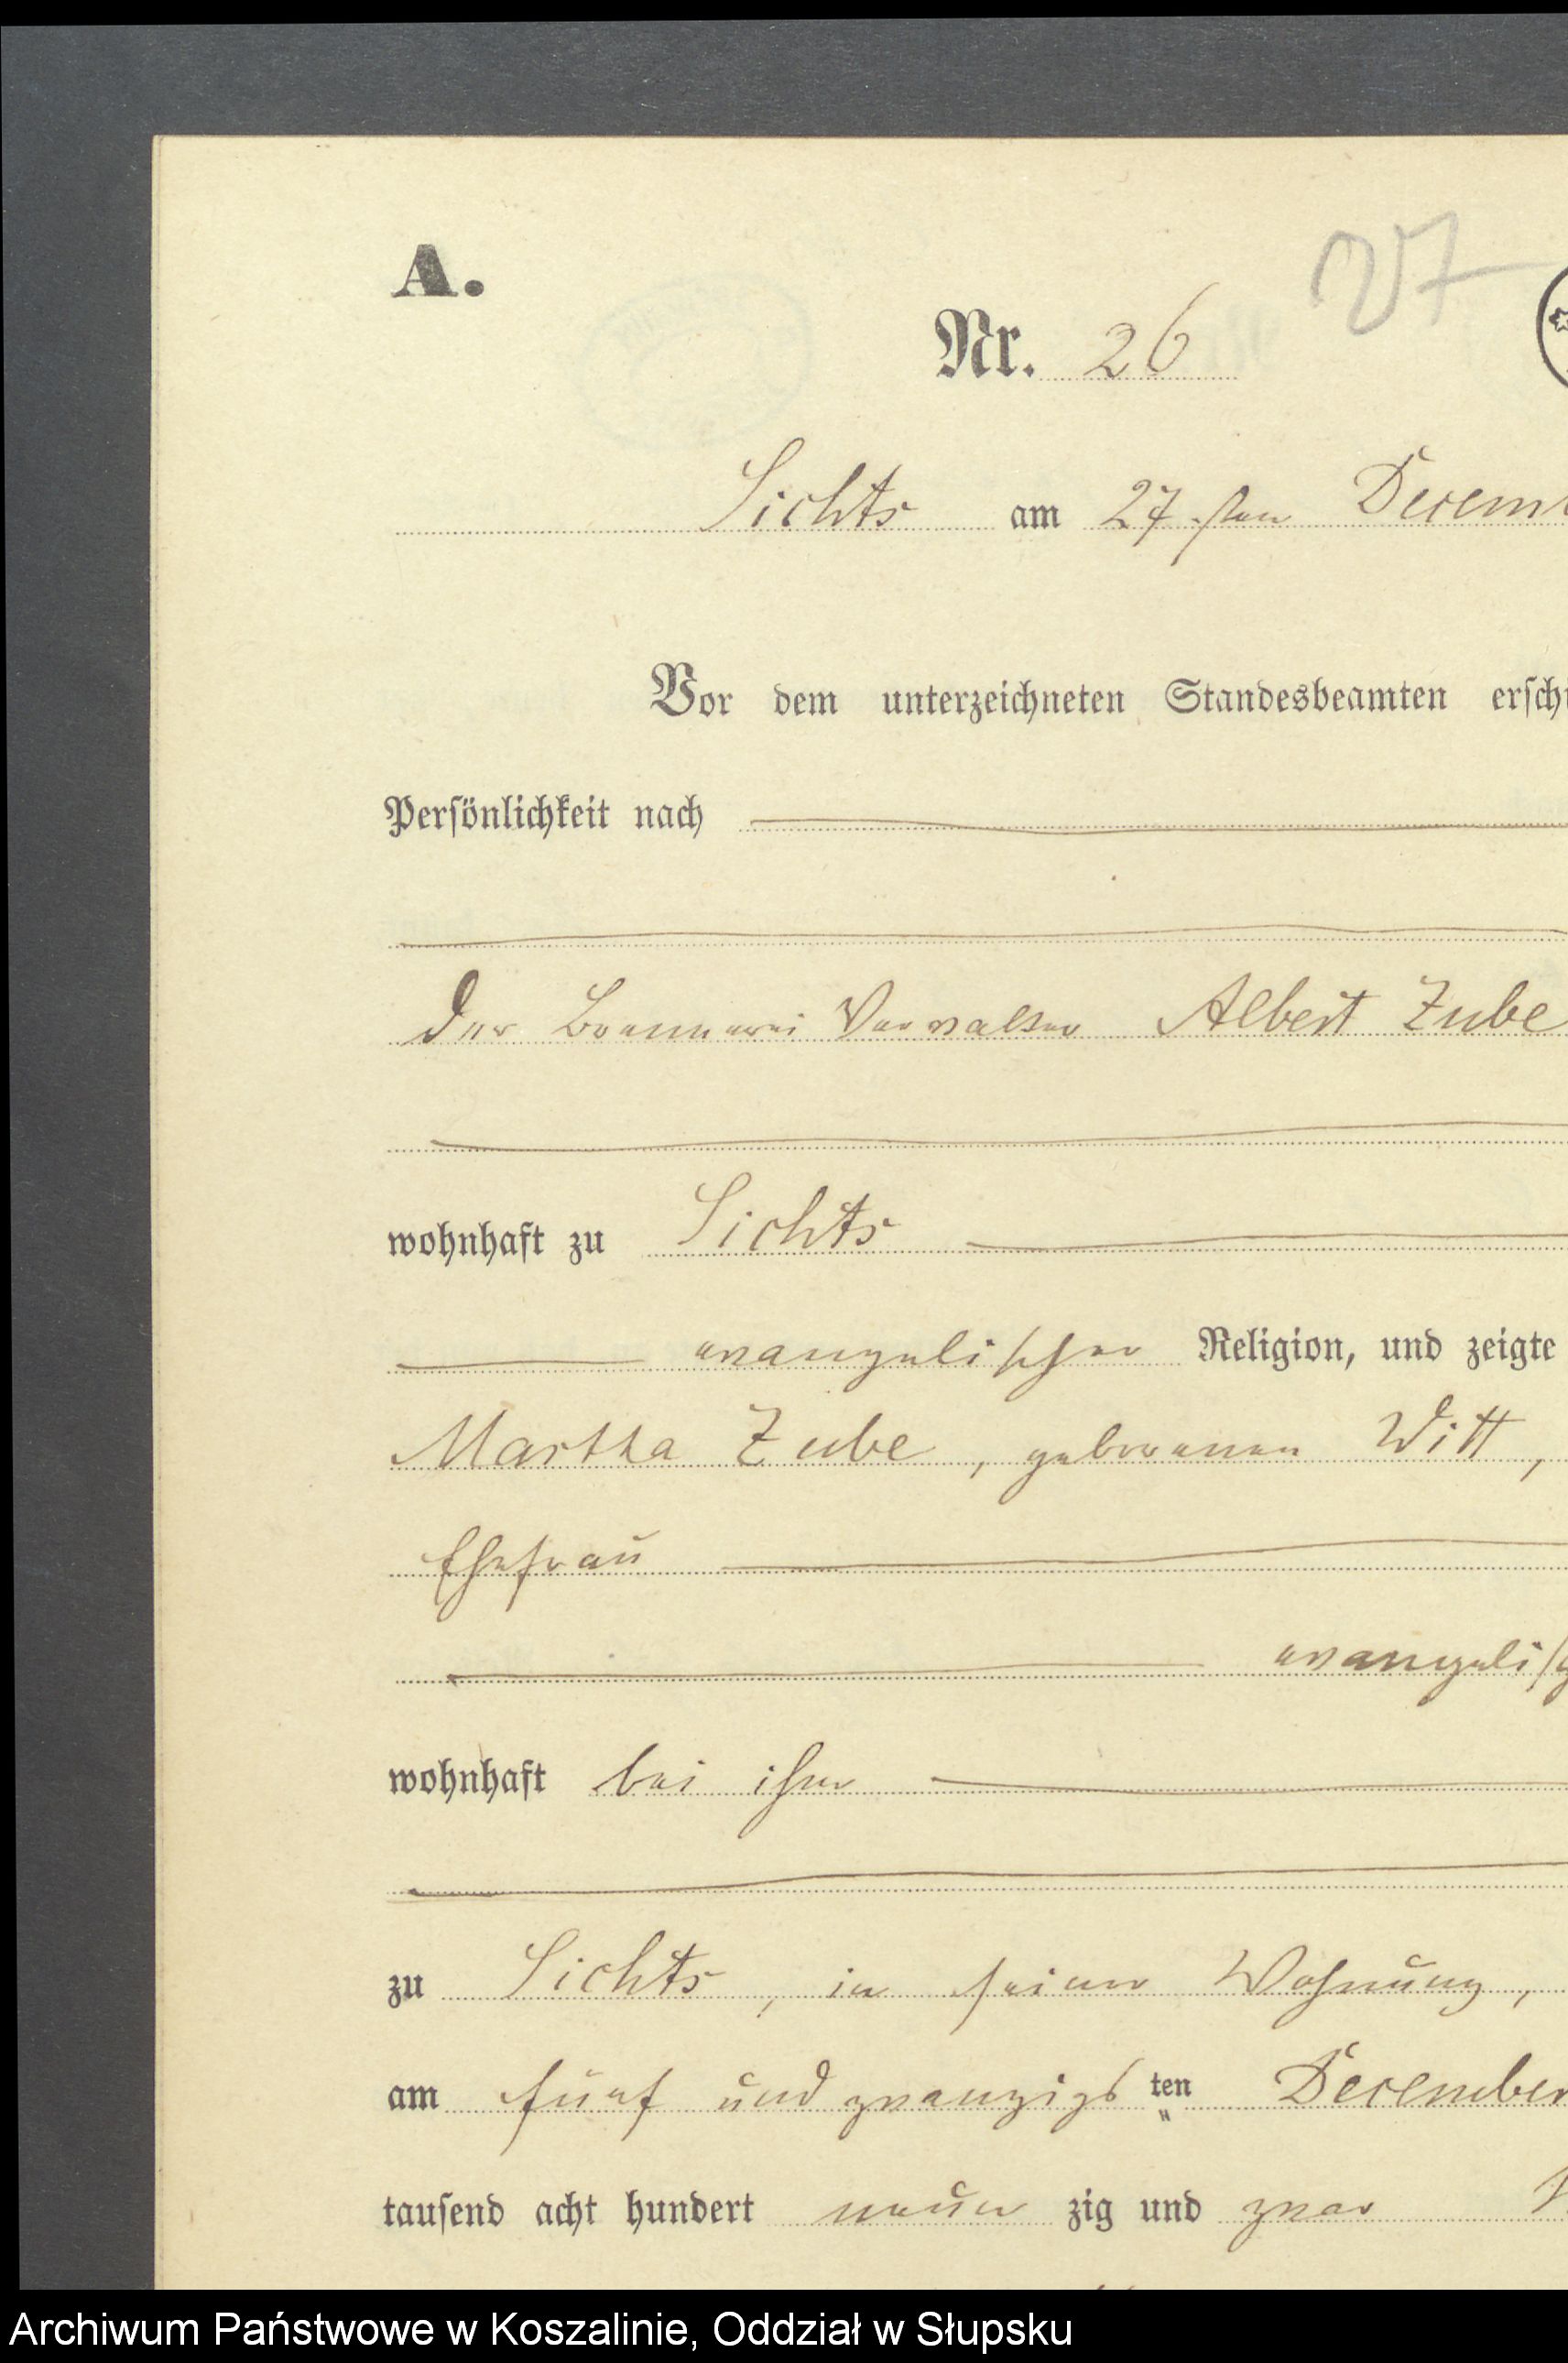 A.
27
Nr. 26
Sichts am 27.sten Decem
Vor dem unterzeichneten Standesbeamten ersch
Persönlichkeit nach
der Brennerei Verwalter Albert Zube
wohnhaft zu Sichts
evangelischer Religion, und zeigte
Martha Zube, geborenen Witt,
Ehefrau
evangelisch
wohnhaft bei ihm
zu Sichts, in seiner Wohnung,
am fünf und zwanzigs ten December
tausend acht hundert neun zig und zwar
Archiwum Państwowe w Koszalinie, Oddział w Słupsku